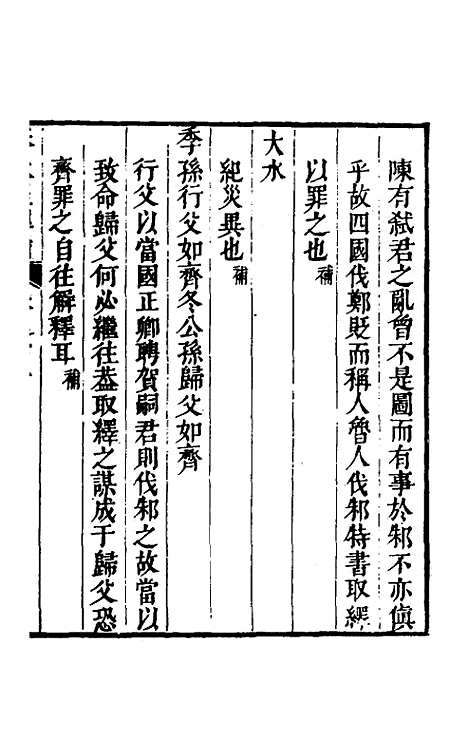 陳有弑君之亂曾不是圖而有事於邾不亦傎
乎故四國伐鄭貶而稱人魯人伐邾特書取繹
以罪之也補
大水
紀災異也補
季孫行父如齊冬公孫歸父如齊
行父以當國正卿聘賀嗣君則伐邾之故當以
致命歸父何必繼往葢取釋之謀成于歸父恐
齊罪之自往解釋耳補